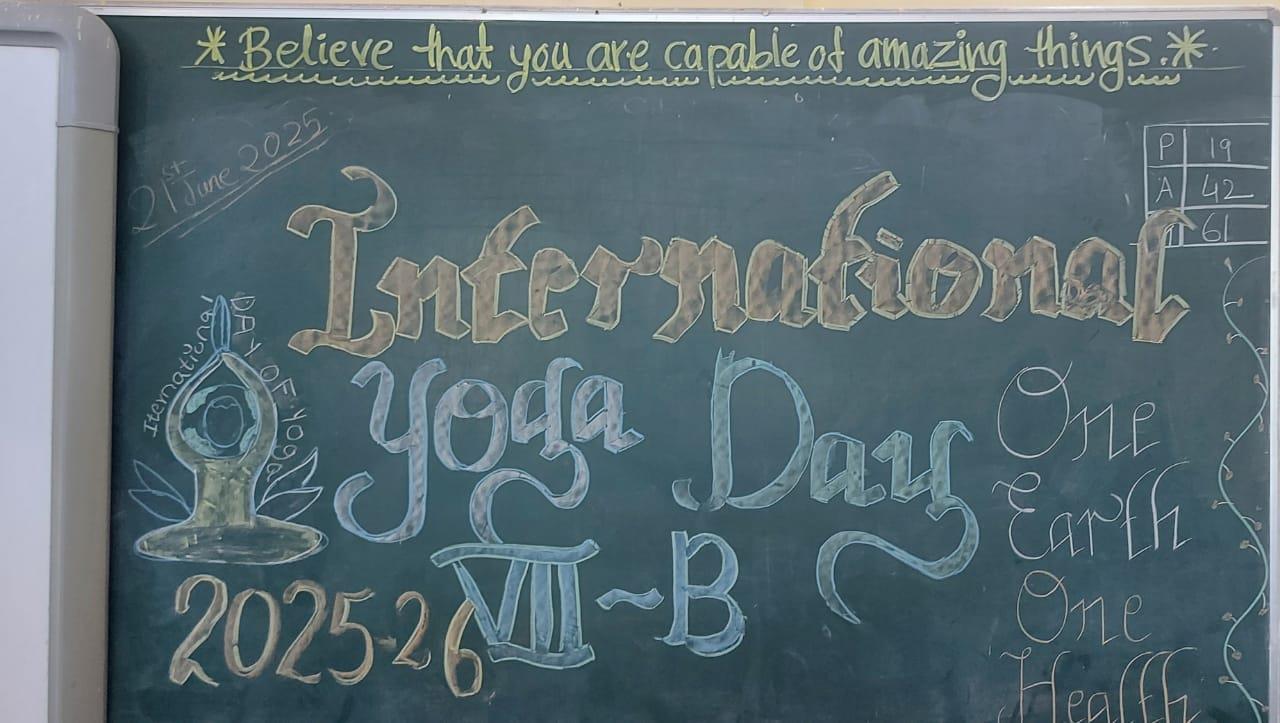 * Believe that you are capable of amazing things. *
21st June 2025
P 19
A 42
61
International
Iternational DAY OF YOGA
Yoga Day
One
Earth
One
Health
VII ~ B
2025-26